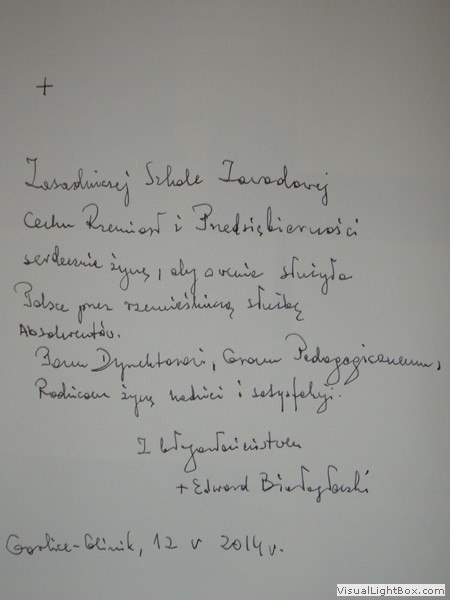 +
Zasadniczej Szkole Zawodowej
Cechu Rzemiosł i Przedsiębiorczości
serdecznie życzę, aby owocnie służyła
Polsce przez rzemieślniczą służbę
Absolwentów.
Panu Dyrektorowi, Gronu Pedagogicznemu,
Rodzicom życzę radości i satysfakcji.
Z błogosławieństwem
+ Edward Białogłowski
Gorlice-Glinik, 12 V 2014 r.
VisualLightBox.com